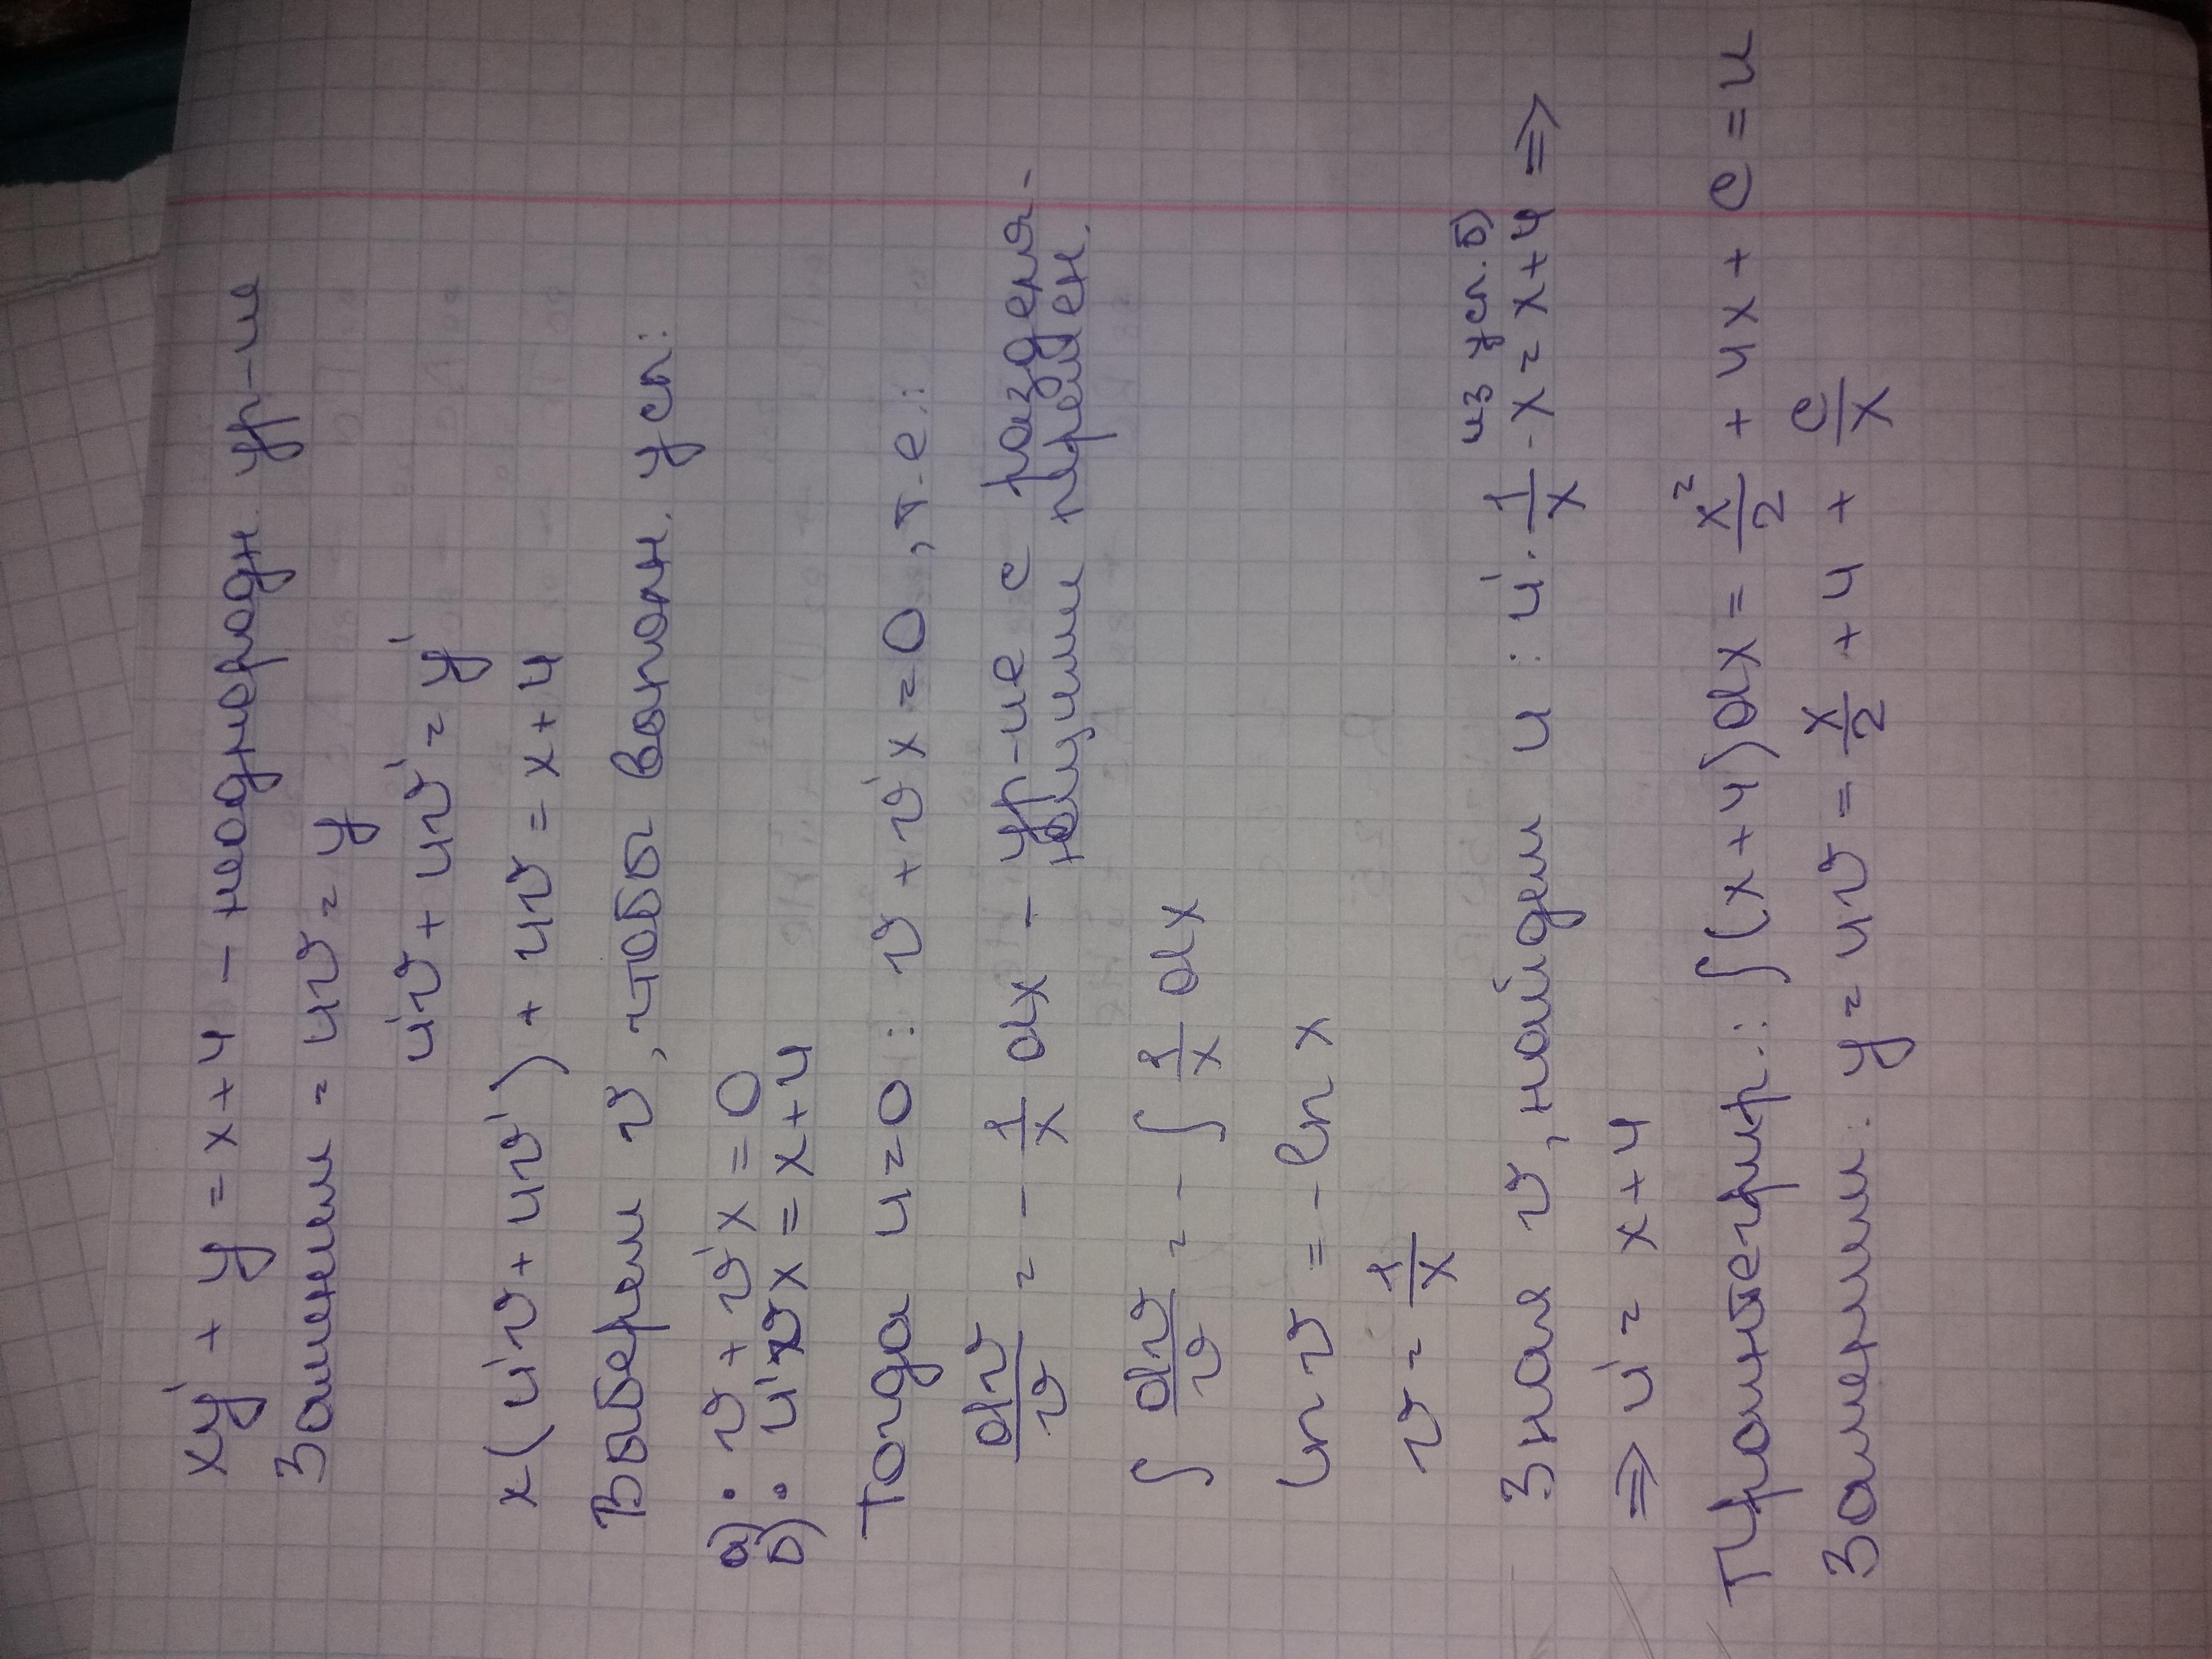 xy' + y = x + 4 – неоднеродн. ур-и
Заменим = uv = y
u'v + uv' = y'
x(u'v + uv') + uv = x + 4
Выберем v, чтобы выполн. усл:
а) • v + v'x = 0
б) • u'vx = x + 4
Тогда u = 0 : v + v'x = 0, т.е.:
dv/v = - 1/x dx – ур-ие с разделя-
ющими перемен.
∫ dv/v = - ∫ 1/x dx
ln v = - ln x
v = 1/x
из усл. б)
Зная v, найдем u : u' · 1/x · x = x + 4 ⇒
⇒ u' = x + 4
Проинтегрир.: ∫(x + 4)dx = x²/2 + 4x + c = u
Заменим: y = uv = x/2 + 4 + c/x